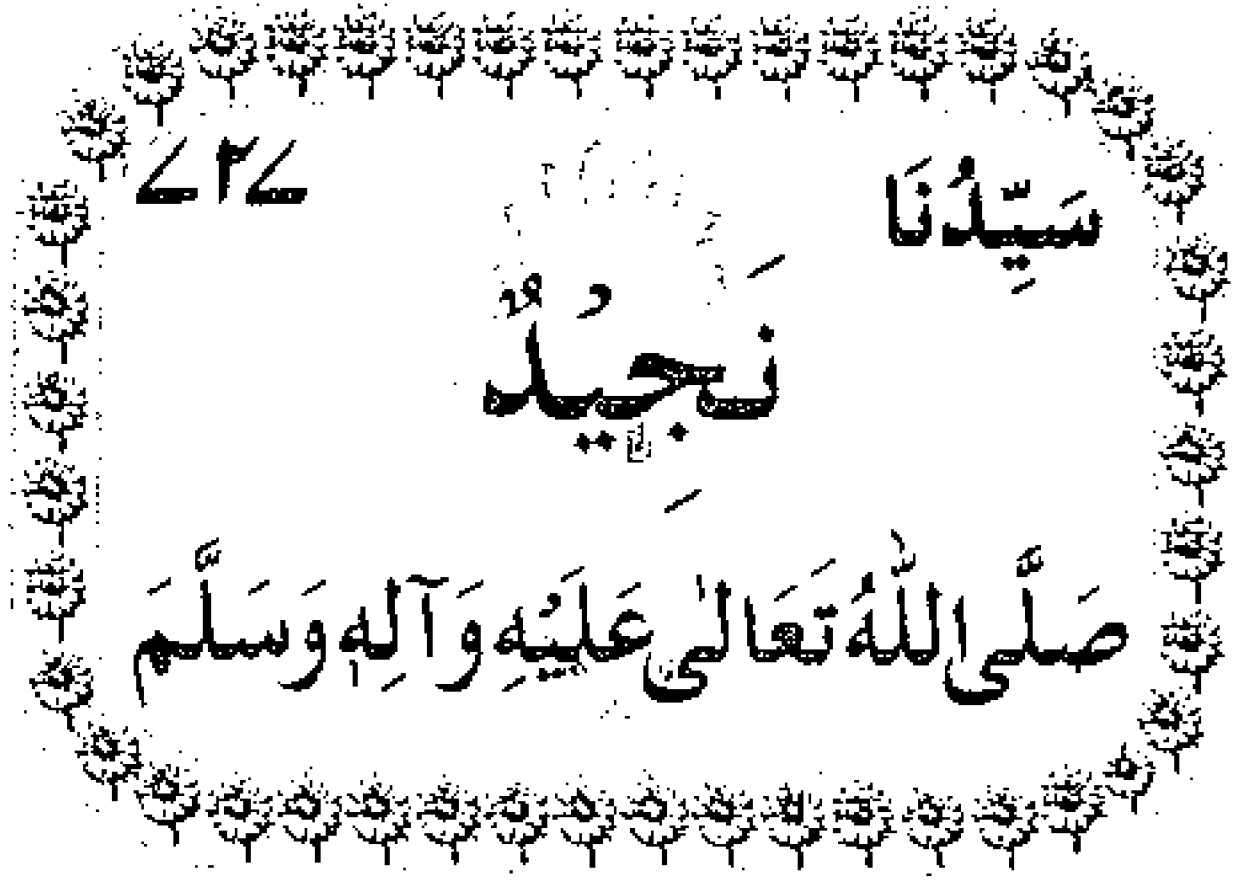 سَيِّدُنَا ۷۲۷
نَجِيْدٌ
صَلَّى اللّٰهُ تَعَالٰى عَلَيْهِ وَآلِهٖ وَسَلَّمَ